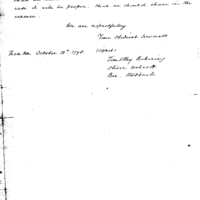 case it will be proper that we should share in the
expence.
We are respectfully
Your Obedient Servants
Trenton October 18th 1798. (signed)
Timothy Pickering
Oliver Wolcott
Ben. Stoddert